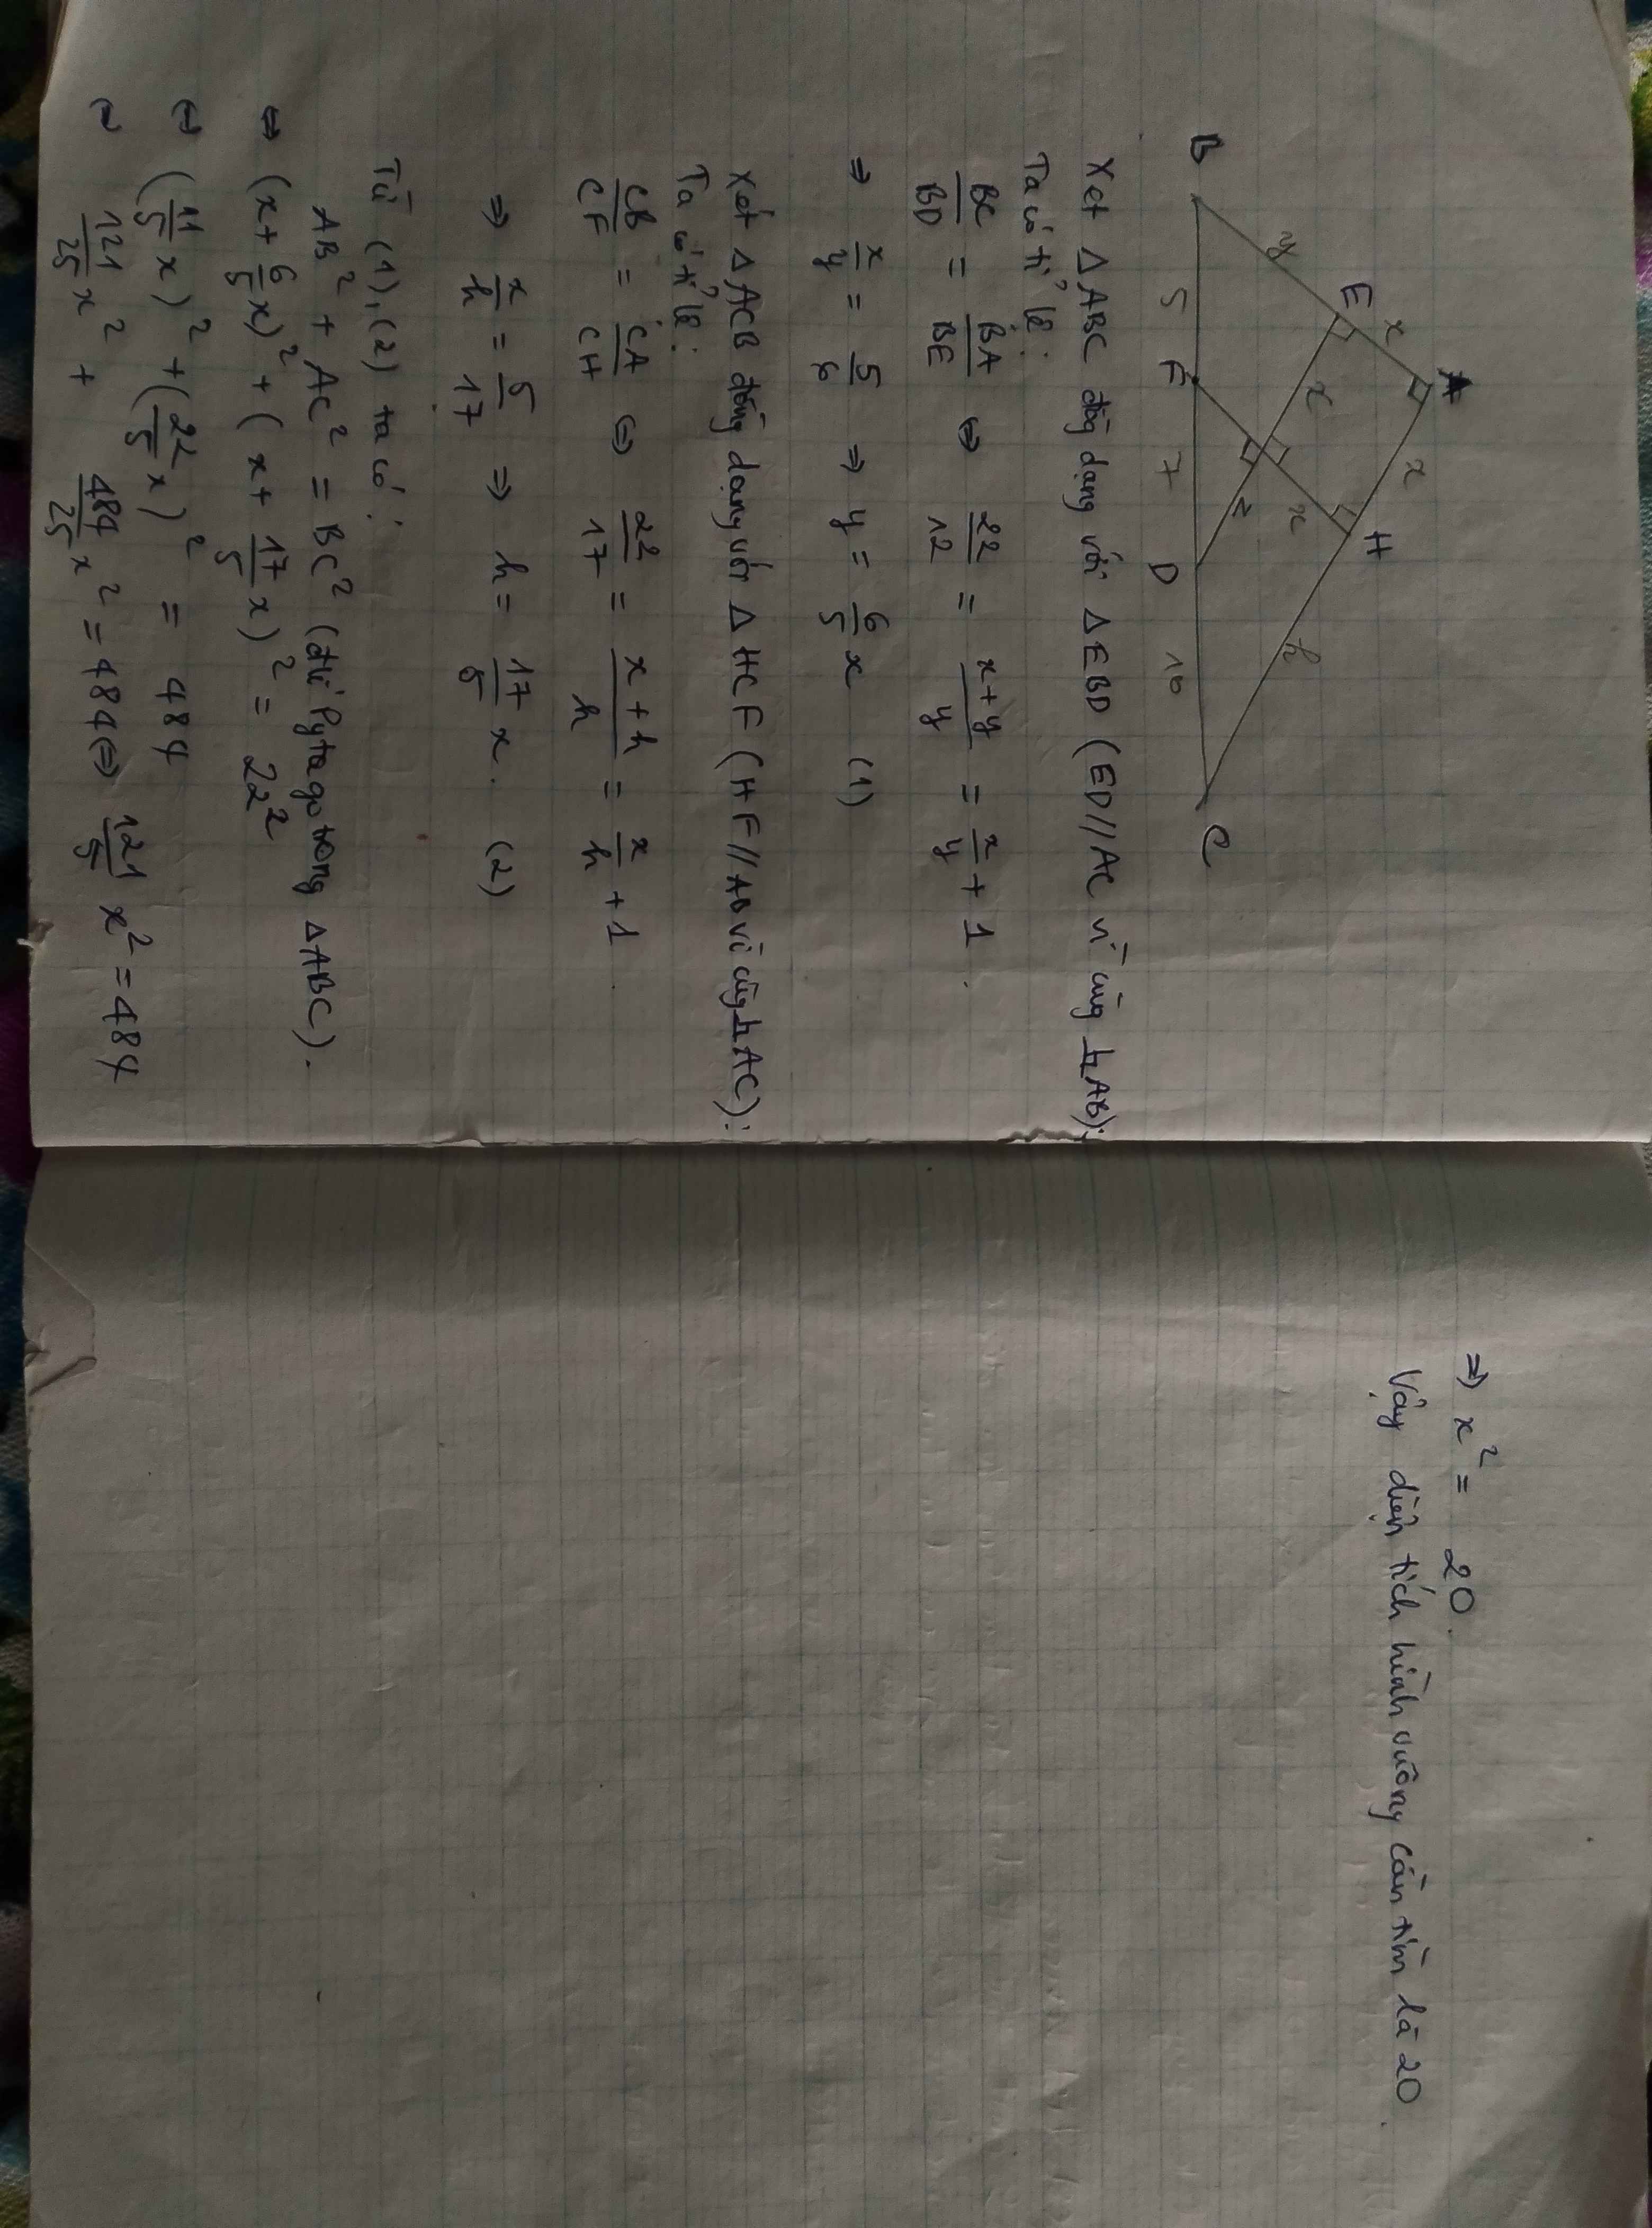 A
E
x
x
y
x
H
x
z
h
B
5
F
7
D
10
C
Xét Δ ABC đồng dạng với Δ EBD (ED // AC vì cùng ⊥ AB):
Ta có tỉ lệ:
BC/BD = BA/BE ⇔ 22/12 = x+y/y = x/y + 1.
⇒ x/y = 5/6 ⇒ y = 6/5 x (1)
Xét Δ ACB đồng dạng với Δ HCF (HF // AB vì cùng ⊥ AC):
Ta có tỉ lệ:
CB/CF = CA/CH ⇔ 22/17 = x+h/h = x/h + 1
⇒ x/h = 5/17 ⇒ h = 17/5 x. (2)
Từ (1), (2) ta có:
AB² + AC² = BC² (đlí Pytago trong Δ ABC).
⇔ (x + 6/5 x)² + (x + 17/5 x)² = 22²
⇔ (11/5 x)² + (22/5 x)² = 484
~ 121/25 x² + 484/25 x² = 484 ⇔ 121/5 x² = 484
⇒ x² = 20.
Vậy diện tích hình vuông cần tìm là 20.